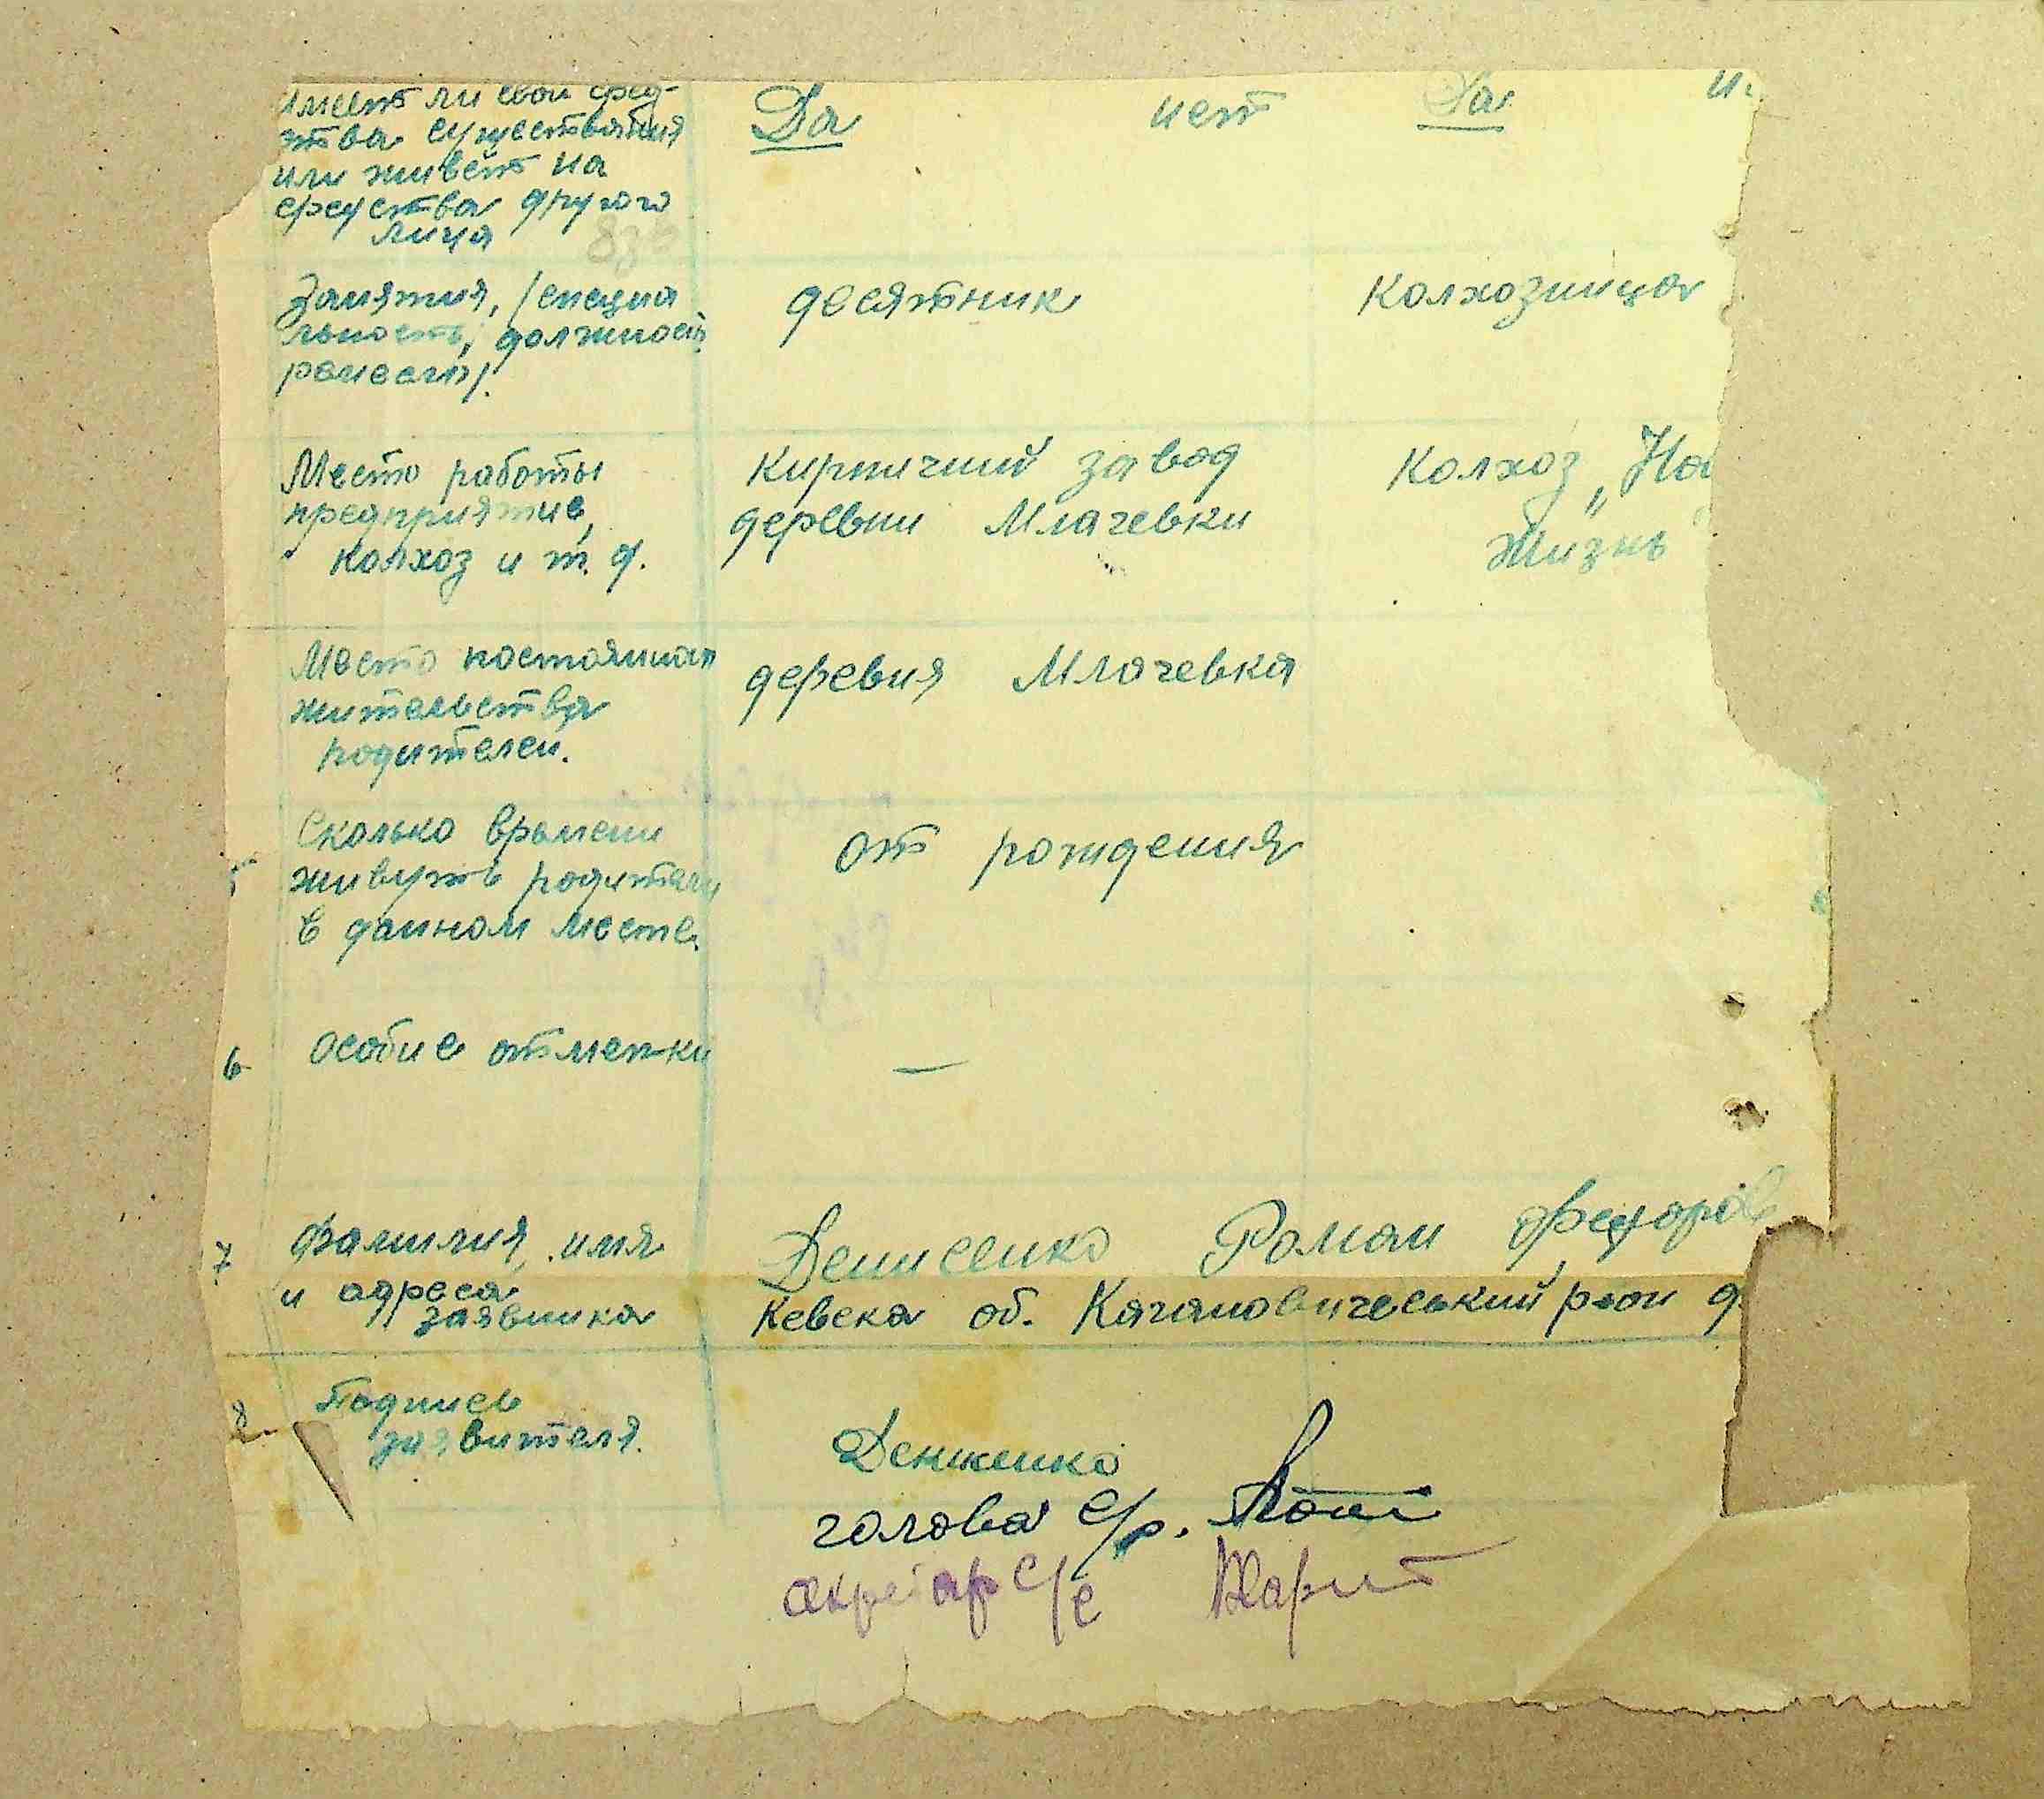 имеет ли свои сред-
ства существования
или живёт на
средства другого
лица
Да нет Да
Занятия, (специа
льность, должность
ремесло).
десятник Колхозница
Место работы
предприятие,
колхоз и т. д.
Кирпичний завод
деревни Млачевки
Колхоз „Но
Жизнь"
Место постоянная
жительства
родителей.
деревня Млачевка
Сколько времени
живуть родители
в данном месте.
от рождения
6 Особие отметки —
7 Фамилия, имя
и адреса
заявника
Денисенко Роман Федоров
Кевска об. Кагановичеський р-он д.
8. Подпись
заявителя.
Денисенко
голова с/р.
секретар с/с